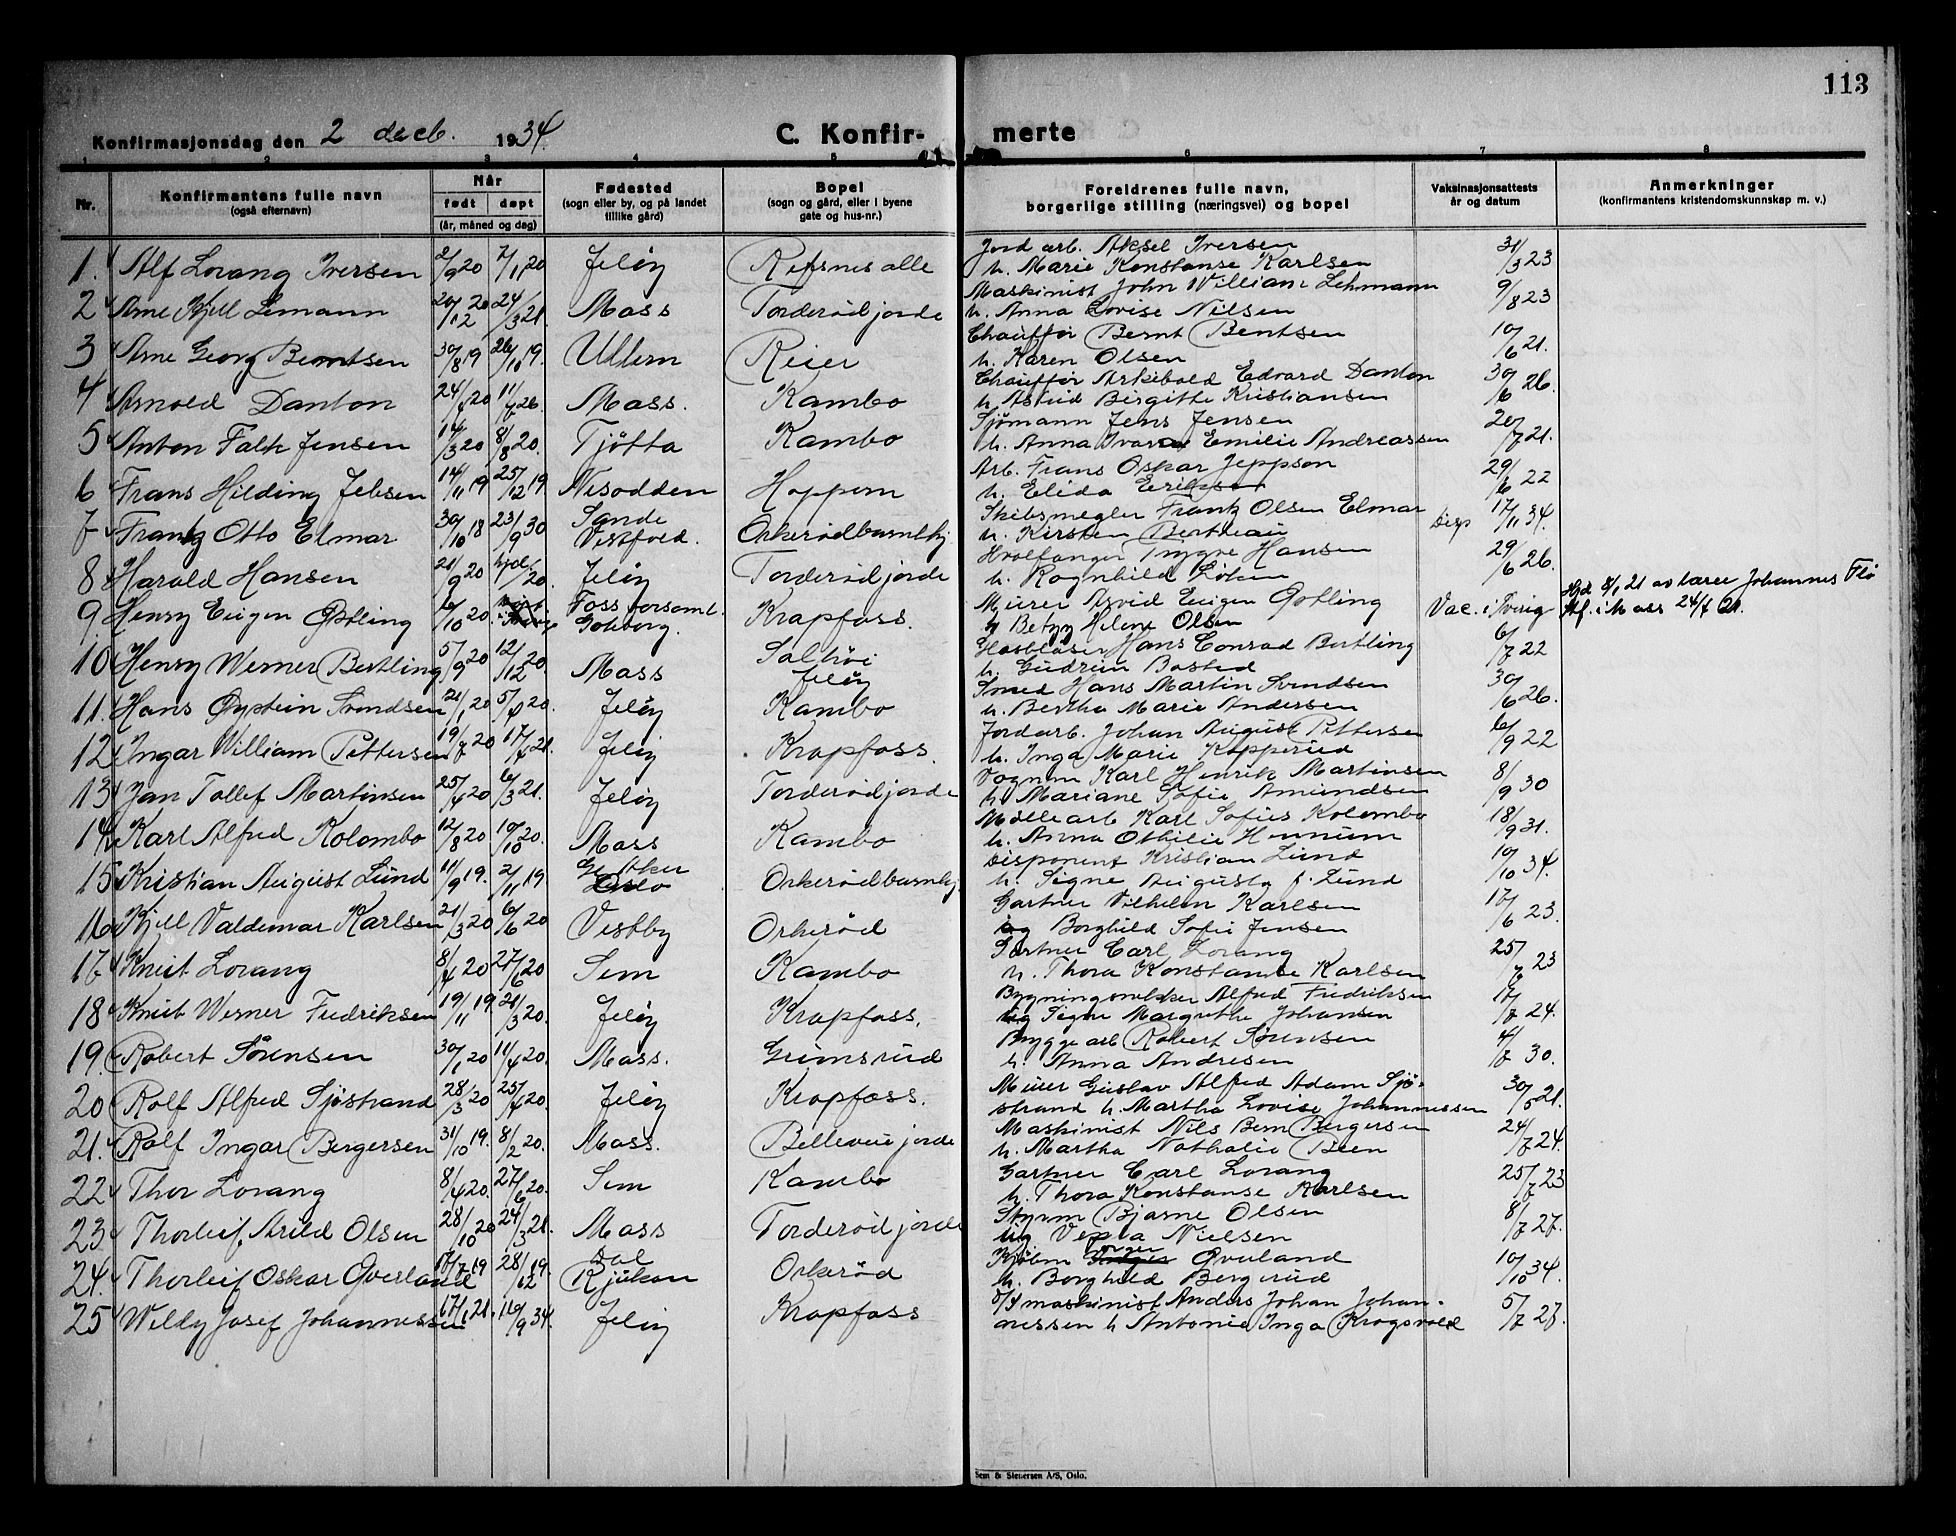 113
Konfirmasjonsdag den 2 decb. 1934. C. Konfir- merte
1 2 3 4 5 6 7 8
Nr. Konfirmantens fulle navn (også efternavn) Når født døpt (år, måned og dag) Fødested (sogn eller by, og på landet tillike gård) Bopel (sogn og gård, eller i byene gate og hus-nr.) Foreldrenes fulle navn, borgerlige stilling (næringsvei) og bopel Vaksinasjonsattests år og datum Anmerkninger (konfirmantens kristendomskunnskap m. v.)
1. Alf Lorang Iversen 2/9 20 7/11 20 Jeløy Refsnesalle Jord arb. Aksel Iversen 31/3 23
h. Marie Konstanse Karlsen
2 Arne Kjell Lemann 20/12 20 24/3 21. Moss Torderødjorde Maskinist John William Lehmann 9/8 23
h. Anna Lovise Nilsen
3 Arne Georg Berntsen 30/8 19 26/10 19. Ullern Reier Chauffør Bernt Bentsen 10/6 21.
h. Karen Olsen
4 Arnold Danton 24/7 20 11/7 26. Moss. Kambo Chauffør Arkibald Edvard Danton 30/6 26.
h. Astrid Birgitte Kristiansen
5 Anton Falk Jensen 14/3 20 8/8 20. Tjøtta Kambo Sjømann Jens Jensen 20/7 21.
h. Anna Ivara Emilie Andreassen
6 Frans Hilding Jebsen 14/11 19 25/12 19 Nesodden Hoppern Arb. Frans Oskar Jeppson 29/6 22
h. Elida Eriksson
7 Frantz Otto Elmar 30/10 18 23/9 30 Sande Vestfold. Orkerødbarnehj. Skibsmegler Frantz Olsen Elmar Disp 17/11 34.
h. Kirsten Bertheau
8 Harald Hansen 21/9 20 hjd. /20. Jeløy Torderødjorde Hvalfanger Trygve Hansen 29/6 26.
h. Ragnhild Løken Hjd 8/1 21 av lærer Johannes Flø
9 Henry Eugen Østling 6/10 20. Foss forsaml. Göteborg. Krapfoss. Murer Arvid Eugen Østling Vac. i Sverig Stf. i Moss 24/7 21.
h Betzy Helene Olsen
10 Henry Werner Bertling 5/9 20 12/12 20. Moss Salhøi Jeløy Glasblåser Hans Conrad Bertling 6/7 22
h. Gudrun Bosted
11. Hans Øystein Svendsen 21/1 20 5/4 20. Jeløy Kambo Smed Hans Martin Svendsen 30/6 26.
h. Bertha Marie Andersen
12 Ingar William Pettersen 19/7 20 17/7 21. Jeløy Krapfoss. Jordarb. Johan August Pettersen 6/9 22
h. Inga Marie Kopperud
13 Jan Tollef Martinsen 25/4 20 6/3 21. Jeløy Torderødjorde Vognm Karl Henrik Martinsen 8/9 30
h. Mariane Sofie Amundsen
14 Karl Alfred Kolombo 12/8 20 10/10 20. Moss Kambo Møllearb Karl Sofus Kolombo 18/9 31.
h. Anna Othilie Hennum
15 Kristian August Lund 11/9 19. 2/11 19 Ø. Aker Oslo Orkerødbarnehj Disponent Kristian Lund 10/10 34.
h. Signe Augusta f. Lund
16 Kjell Valdemar Karlsen 21/3 20 6/6 20 Vestby Orkerød Gartner Vilhelm Karlsen 17/6 23.
og Borghild Sofie Jensen
17 Knut Lorang 8/4 20 27/6 20 Sem Kambo Gartner Carl Lorang 25/7 23
h. Thora Konstanse Karlsen
18 Knut Werner Fredriksen 19/11 19 21/3 20. Jeløy Krapfoss. Bygningssnekker Alfred Fredriksen 17/7 24.
og Signe Margrethe Johansen
19. Robert Sørensen 30/1 20 11/4 20. Moss. Grimsrud Brygge arb Robert Sørensen 4/7 30.
h. Anna Andresen
20 Rolf Alfred Sjøstrand 28/3 20 25/7 20. Jeløy Krapfoss. Murer Gustav Alfred Adam Sjø- 30/5 21.
strand h. Martha Lovise Johannessen
21. Rolf Ingar Bergersen 31/10 19. 8/2 20. Moss. Bellevuejorde Maskinist Nils Bern Bergersen 24/7 24.
h. Martha Nathalie Been
22 Thor Lorang 8/4 20. 27/6 20. Sem Kambo Gartner Carl Lorang 25/7 23
h. Thora Konstanse Karlsen
23 Thorleif Arild Olsen 28/10 20 24/3 21. Moss Torderødjorde Styrm Bjarne Olsen 8/7 27.
og Vesta Nielsen
24. Thorleif Oskar Øverland 17/7 19 28/12 19. Dal Rjukan Orkerød Kjøbm Øverland 10/10 34.
h. Borghild Bergerud
25 Willy Josef Johannessen 17/1 21. 16/9 34. Jeløy Krapfoss maskinist Anders Johan Johan- 5/7 27.
nessen h Antonie Inga Krogsvold
Sem & Stenersen A/S, Oslo.